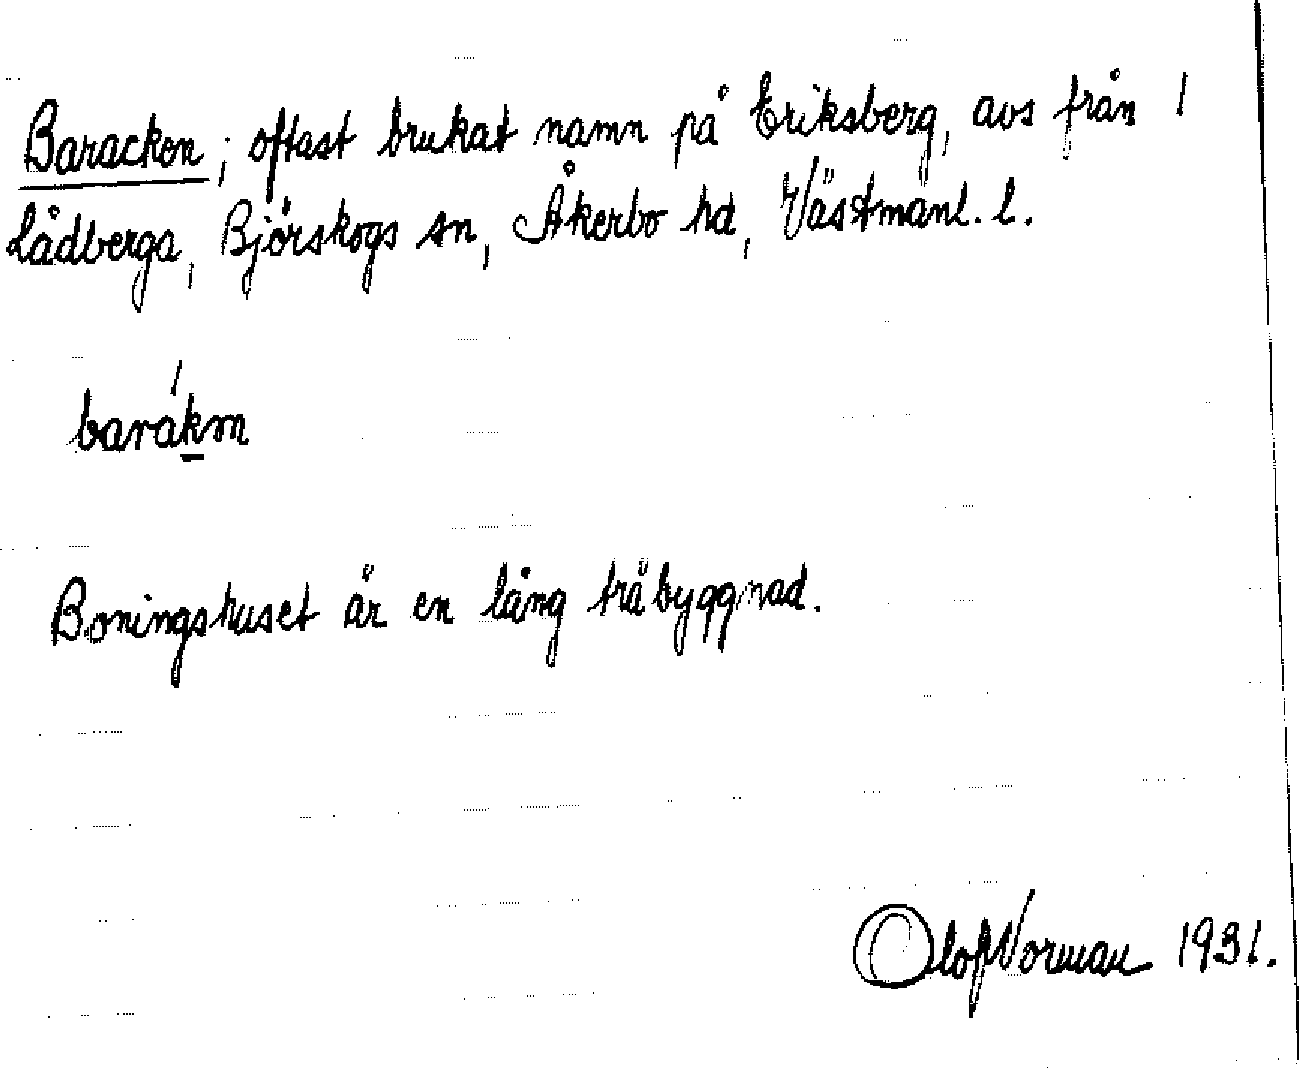 Baracken; oftast brukat namn på Eriksberg, avs från 1
Lådberga, Björskogs sn, Åkerbo hd, Västmanl. l.
barákm
Boningshuset är en lång träbyggnad.
Olof Norman 1931.